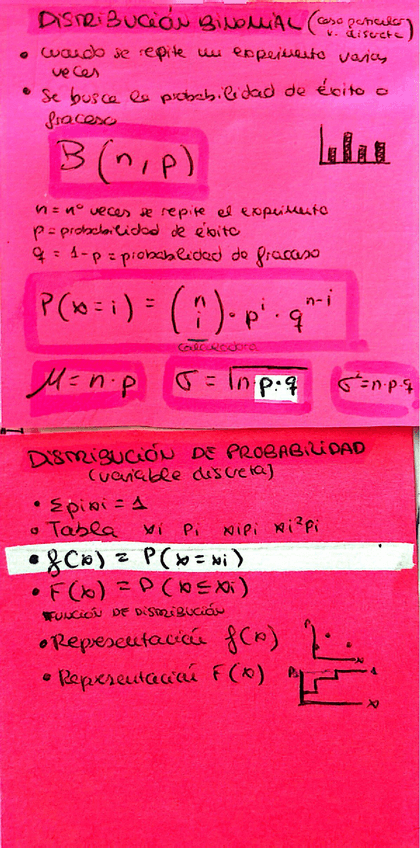 DISTRIBUCIÓN BINOMIAL (caso particular v. discreta)
• cuando se repite un experimento varias
veces
• Se busca la probabilidad de éxito o
fracaso
B(n, p)
n = nº veces se repite el experimento
p = probabilidad de éxito
q = 1-p = probabilidad de fracaso
P(x=i) = (n i) · p^i · q^{n-i}
calculadora
μ = n·p σ = √n·p·q σ² = n·p·q
DISTRIBUCIÓN DE PROBABILIDAD
(variable discreta)
• Σpixi = 1
• Tabla xi pi xipi xi²pi
• f(x) = P(x=xi)
• F(x) = P(x≤xi)
FUNCIÓN DE DISTRIBUCIÓN
• Representación f(x)
• Representación F(x)